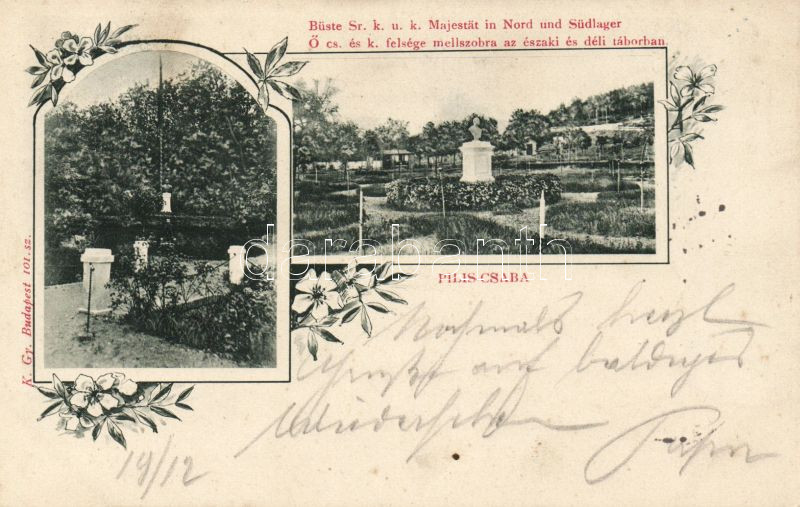 Büste Sr. k. u. k. Majestät in Nord und Südlager
Ő cs. és k. felsége mellszobra az északi és déli táborban.
K. Gy. Budapest 101. sz.
darabanth
PILIS-CSABA
Nochmals herzl
Grüße auf baldiges
Wiedersehen
19/12